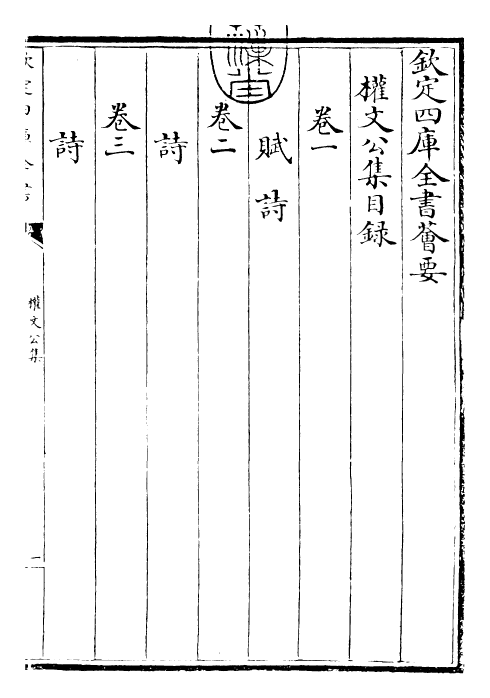 欽定四庫全書薈要
權文公集目録
卷一
賦 詩
卷二
詩
卷三
詩
權文公集
一